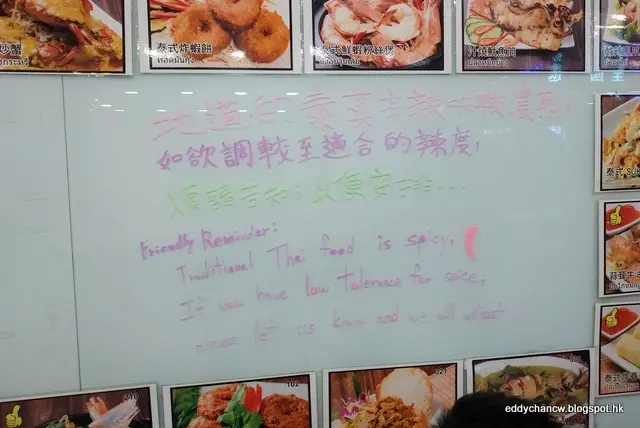 炒蟹
泰式炸蝦餅
ทอดมันกุ้ง
泰式鮮蝦粉絲煲
汁燒魷魚筒
地道的泰菜辛辣
如欲調較至適合的辣度,
煩請告知,以免
Friendly Reminder:
Traditional Thai food is spicy.
If you have low tolerance for spice,
please let us know and we will adjust
泰式
210
102
321
eddychancw.blogspot.hk